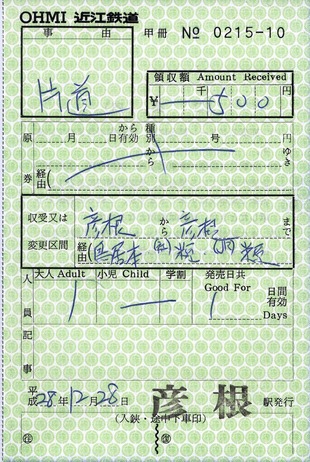 OHMI 近江鉄道
事由 甲冊 № 0215-10
片道
領収額 Amount Received
¥ 千 500 円
原券 月 日 から有効 種別 号 円
から ゆき
経由(
収受又は変更区間 彦根 から 彦根 まで
経由(鳥居本
人員 大人 Adult 小児 Child 学割 発売日共 Good For 日間有効 Days
1 1
記事
平成 28年 12月 28日 彦根 駅発行
(入鋏・途中下車印)